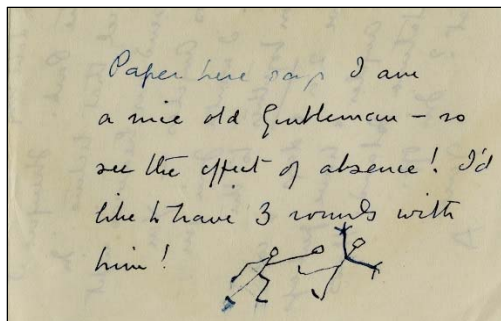 Paper here says I am
a nice old Gentleman - so
see the effect of absence! I'd
like to have 3 rounds with
him!